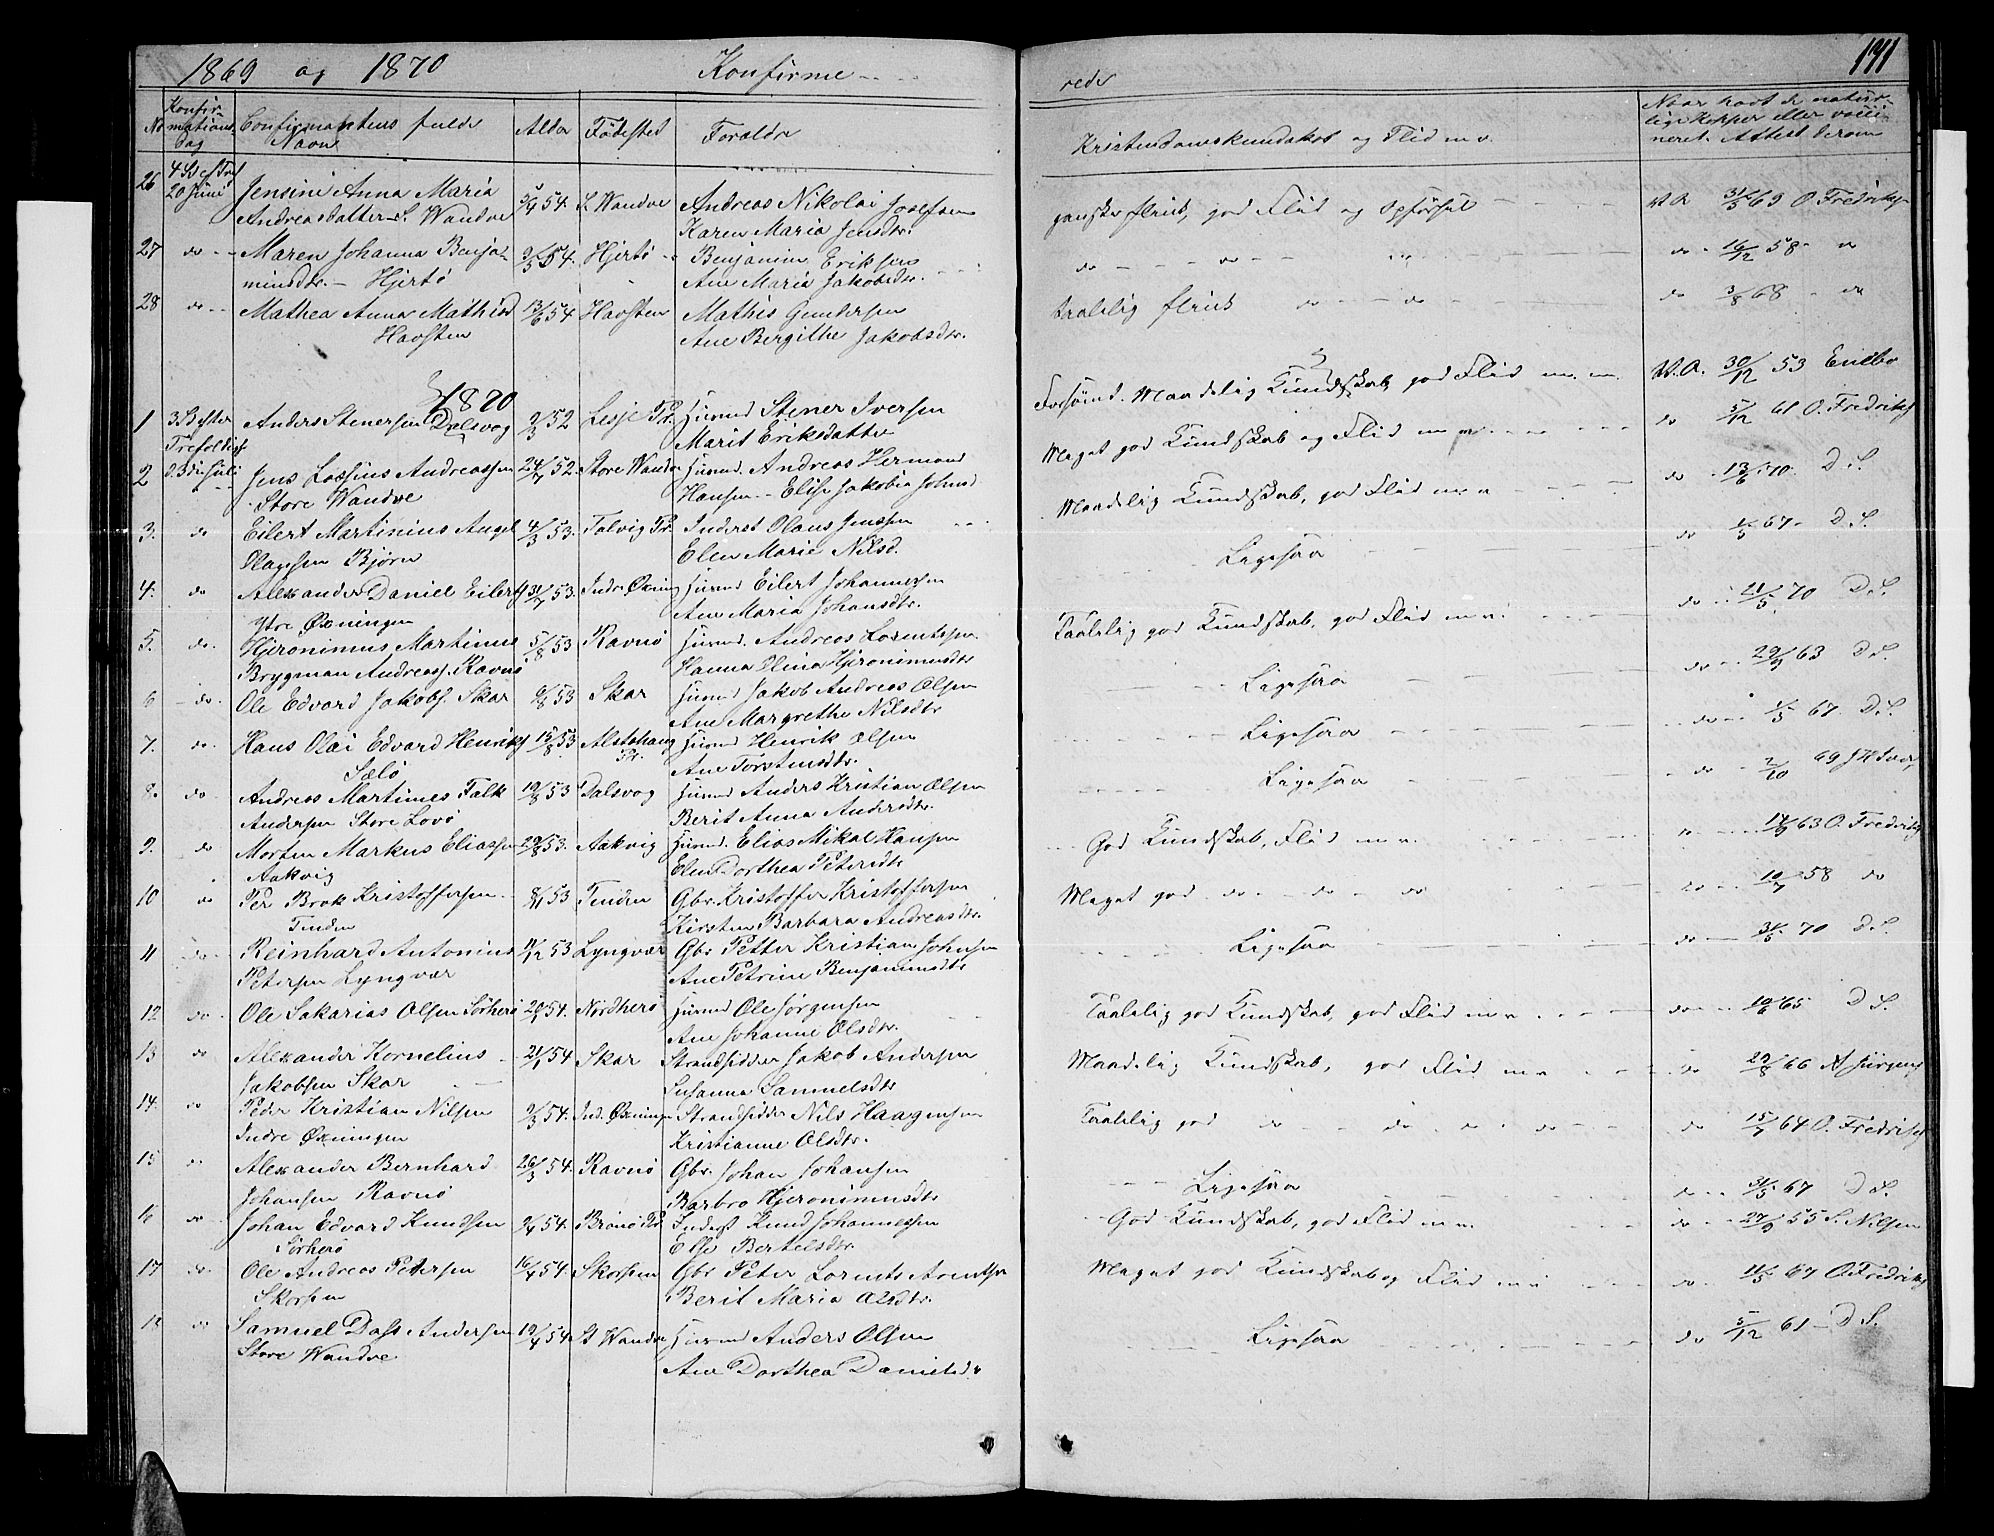 1869 og 1870 Konfirme
rede
141
No
Konfir-
mations
Dag
Confirmantens fulde
Navn
Alder
Fødested
Foreldre
Kristendomskundskab og Flid m. v.
Naar havt de natur-
lige Kopper eller vacci-
neret. Attest derom
26
20 Juni
Jensine Anna Maria
Andreasdatter S. Wandve
54. S. Wandve
Andreas Nikolai Josefsen
Karen Maria Jensdtr.
ganske flink, god Flid og Opførsel
V. A. 31/5 69 O. Fredriks
27 do
Maren Johanna Benja-
minsdtr. – Hjertø
9/5 54. Hjertø
Benjamin Eriksen
Ane Maria Jakobsdtr.
do – do
do 16/12 58 "
28 do
Mathea Anna Mathisd
Havsten
13/6 54 Havsten
Mathis Gundersen
Ane Bergithe Jakobsdtr.
taalelig flink do – do
do 3/8 68 – do
1870
1 3 S. efter
Trefoldigh
Anders Stenersen Dalsvog
2/3 52 Lesje Pr.
Huusmd Stener Iversen
Marit Eriksdatter
Forsømd. Maadelig Kundskab, god Flid m. m.
V. A. 30/12 53
2 d. 3die Juli
Jens Lossius Andreassen
Store Wandve
24/7 52. Store Wandve
Huusmd. Andreas Hermand
Hansen – Elise Jakobia Johnsd
Meget god Kundskab og Flid m v
do 5/12 61 O. Fredriks
3. do
Eilert Martinius Angel
Olagsen Bjørn
4/3 53. Talvig Pr.
Inderst Olaus Jenssen
Elen Marie Nilsd.
Maadelig Kundskab, god Flid m v
do 13/6 70 D. S.
4. do
Alexander Daniel Eilerts
Ytre Øxningen
31/7 53. Indre Øxning
Huusmd Eilert Johannesen
Ane Maria Johansdtr.
Ligesaa
do 1/5 67 – D. S.
5. do
Hjeronimus Martinus
Brygman Andreas. Ravnø
5/8 53 Ravnø
Huusmd. Andreas Lorentsen
Hanna Olina Hjeronimusdtr
Taalelig god Kundskab, god Flid m v
do 21/5 70 D. S.
6 do
Ole Edvard Jakobs. Skar
6/8 53 Skar
Huusmd Jakob Andreas Olsen
Ane Margrethe Nilsdtr
Ligesaa
do 29/9 63 D. S.
7. do
Hans Olai Edvard Henriks
Sælø
15/8 53 Alstahaug
Pr.
Huusmd Henrik Olsen
Ane Torstensdtr.
Ligesaa
do 1/5 67 D. S.
8. do
Andreas Martines Falk
Andersen Store Lovø
19/8 53 Dalsvog
Huusmd Anders Kristian Olsen
Berit Anna Andersdtr.
Ligesaa
do 2/10 69
9. do
Morten Markus Eliassen
Aakvig
29/8 53. Aakvig
Huusmd. Elias Mikal Hansen
Elen Dorthea Petersdtr
God Kundskab, Flid m v.
14/9 63 O. Fredriks
10 do
Per Brok Kristoffersen
Tinden
8/11 53 Tinden
Gbr. Kristoffer Kristoffersen
Kirsten Barbara Andreasdtr.
Meget god do – do – do
do 10/7 58 do
11 do
Reinhard Antonius
Petersen Lyngvær
11/12 53 Lyngvær
Gbr Petter Kristian Johnsen
Ane Petrine Benjaminsdtr
Ligesaa
do 31/5 70 D. S.
12 do
Ole Sakarias Olsen Sørherø
20/1 54. Nordherø
Huusmd Ole Jørgensen
Ane Johanne Olsdtr.
Taalelig god Kundskab, god Flid m v
do 19/6 65 D S.
13 do
Alexander Kornelius
Jakobsen Skar
21/1 54 Skar
Strandsidder Jakob Andersen
Susanna Samuelsdtr
Maadelig Kundskab, god Flid m v
do 29/8 66 A Jørgens
14. do
Peder Kristian Nilsen
Indre Øxningen
9/3 54. Ind. Øxningen
Strandsidder Nils Haagensen
Kristianne Olsdtr.
Taalelig god do – do – do
do 15/7 64 O. Fredriks
15 do
Alexander Bernhard
Johansen Ravnø
26/3 54. Ravnø
Gbr. Johan Johansen
Barbro Hjeronimusdtr
Ligesaa
do 31/5 67 D S.
16 do
Johan Edvard Knudsen
Sørherø
9/4 54. Brønø Pr
Inderst Knud Johannesen
Else Bertelsdtr.
God Kundskab, god Flid m v.
do 27/9 55 S. Nilsen
17 do
Ole Andreas Petersen
Skorpen
16/4 54 Skorpen
Gbr Peter Lorents Arentsen
Berit Maria Olsdtr.
Meget god Kundskab og Flid m v
do 11/5 67 O. Fredriks
18 do
Samuel Dass Andersen
Store Wandve
19/4 54 St Wandve
Huusmd Anders Olsen
Ane Dorthea Danielsd.
Ligesaa
do 5/12 61 – D S.